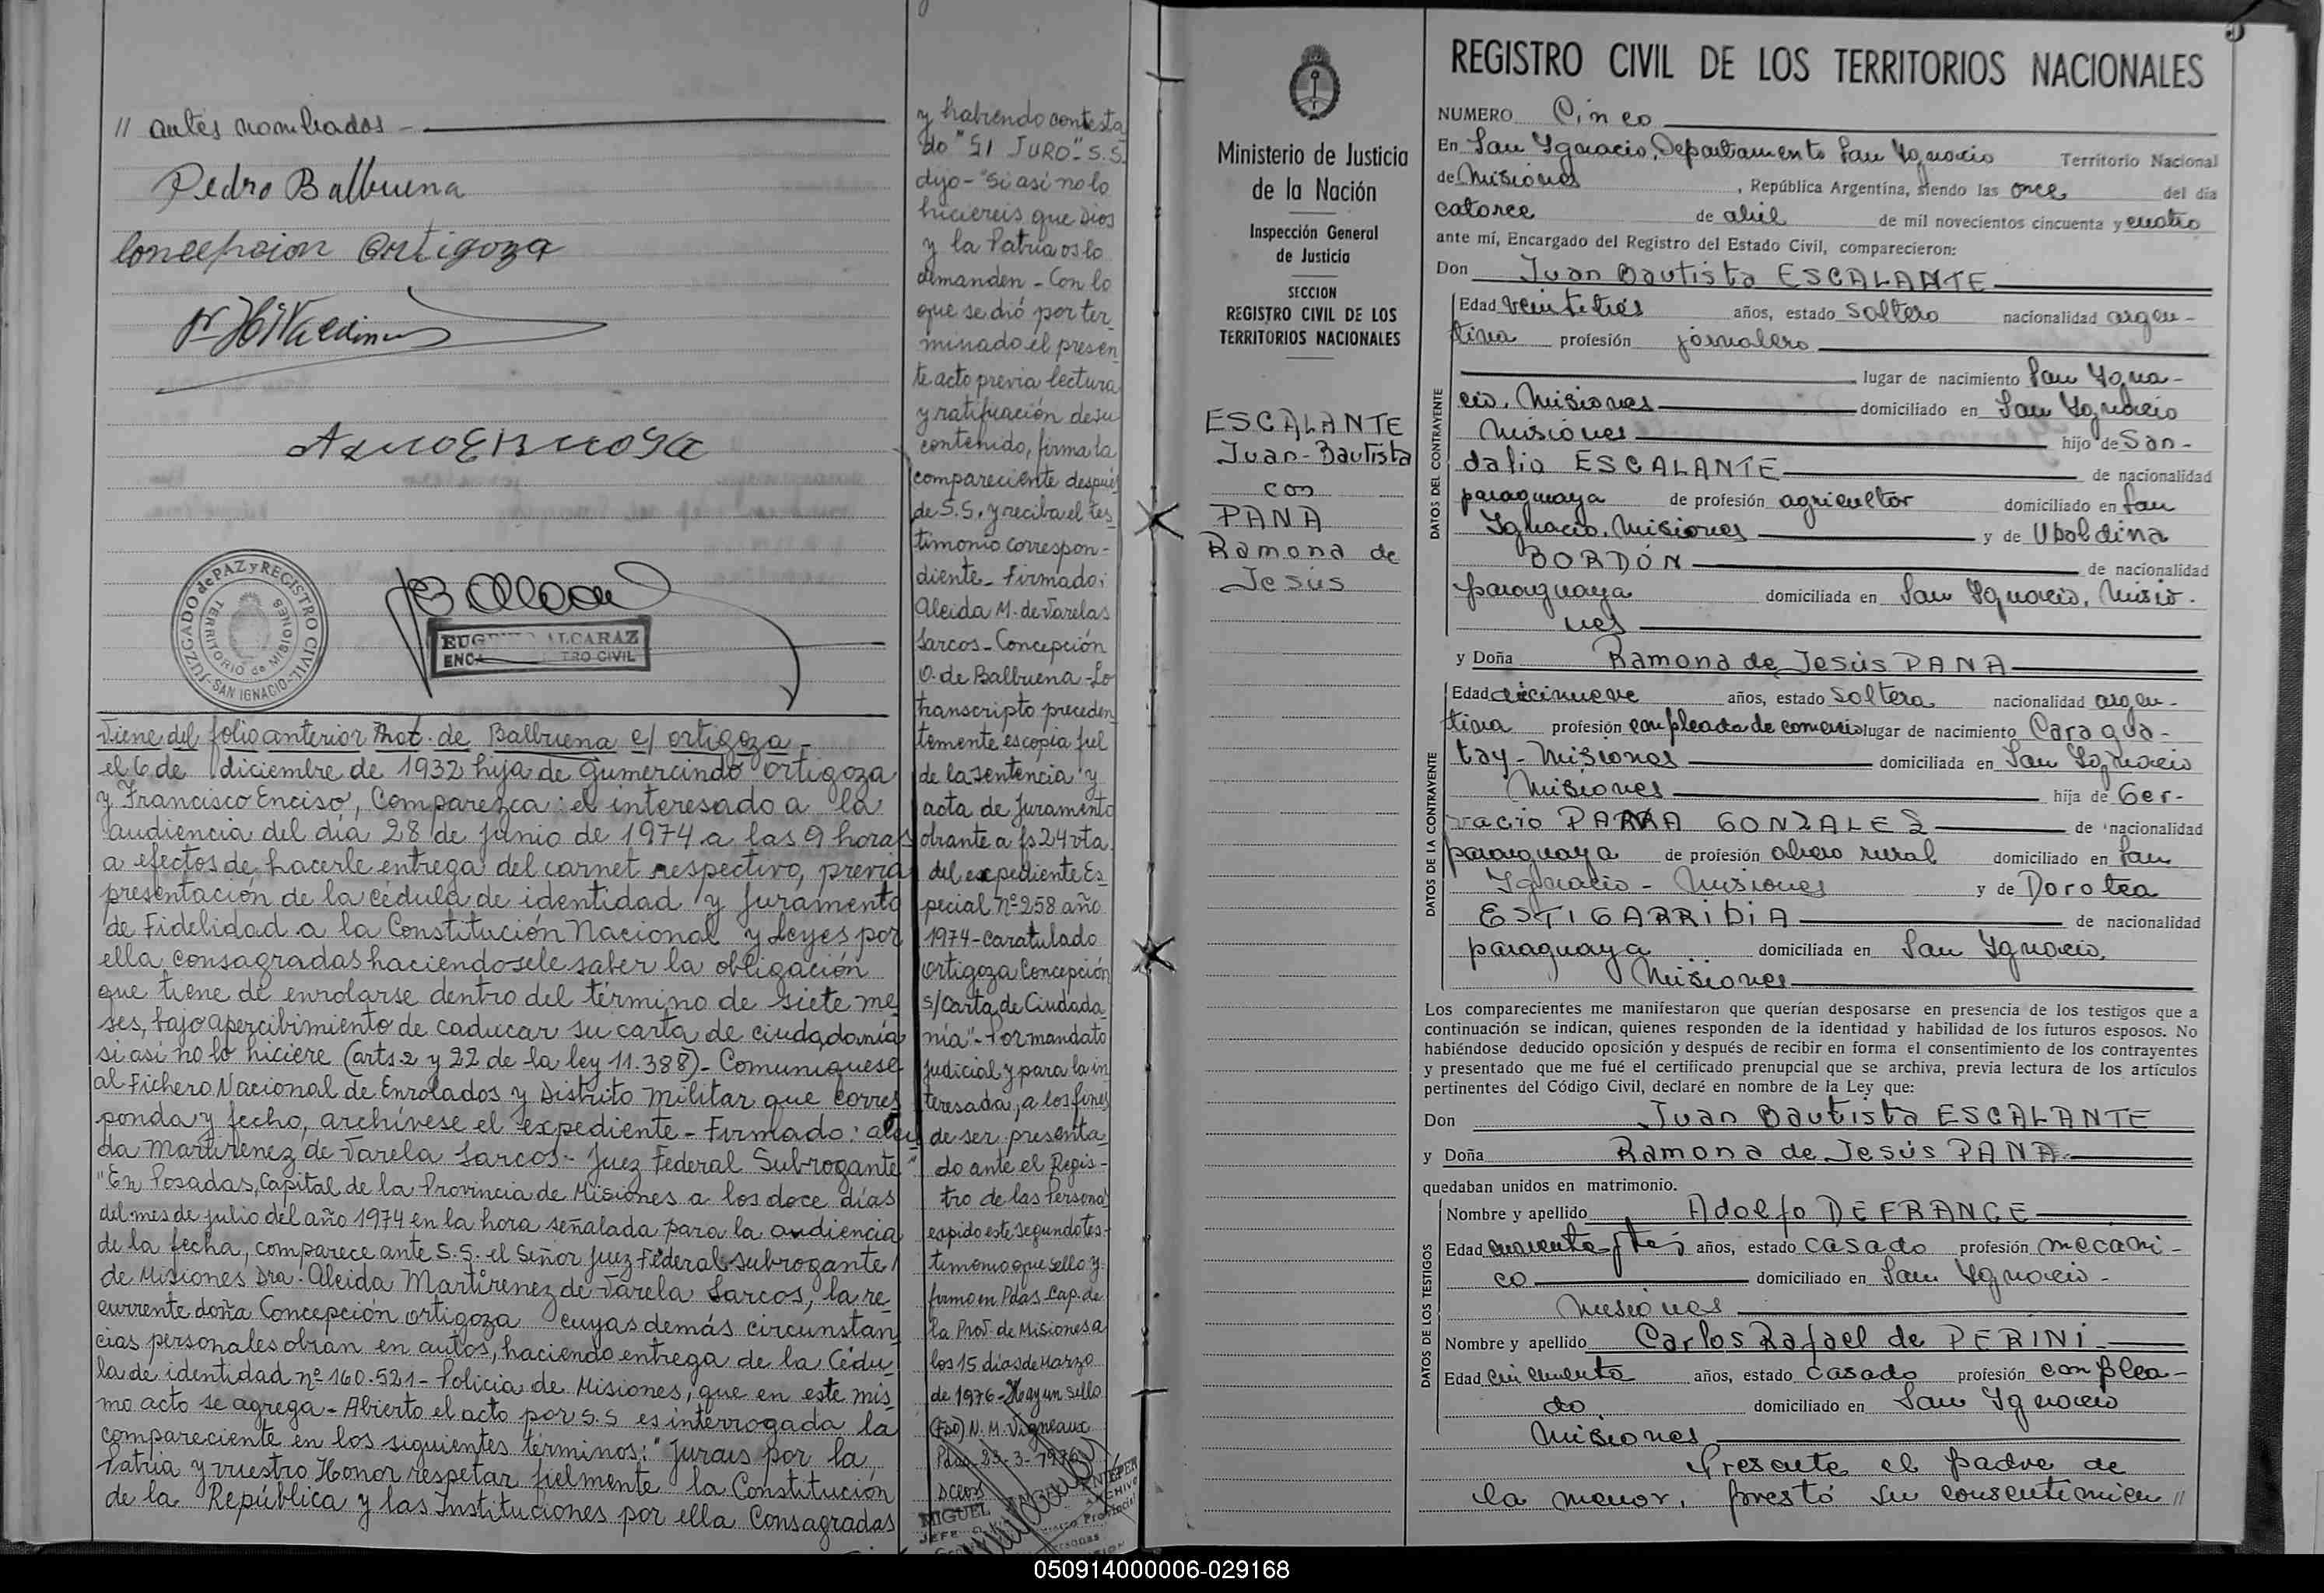 // antes nombrados -
Pedro Balbuena
Concepcion Ortigoza
JUZGADO de PAZ y REGISTRO CIVIL
TERRITORIO de MISIONES
-SAN IGNACIO-
ALCARAZ
TRO CIVIL
Viene del folio anterior Mat. de Balbuena c/ ortigoza -
el 6 de diciembre de 1932 hija de Gumercindo Ortigoza
y Francisco Enciso, Comparezca: el interesado a la
audiencia del día 28 de junio de 1974 a las 9 horas
a efectos de hacerle entrega del carnet respectivo, previa
presentación de la cédula de identidad y juramento
de Fidelidad a la Constitución Nacional y Leyes por
ella consagradas haciendosele saber la obligación
que tiene de enrolarse dentro del término de siete me
ses, bajo apercibimiento de caducar su carta de ciudadanía
si así no lo hiciere (arts 2 y 22 de la ley 11.388)- Comuniquese
al Fichero Nacional de Enrolados y Distrito Militar que corres
ponda y fecho, archívese el expediente - Firmado: alei
da Martirenez de Varela Larcos - Juez Federal Subrogante"
"En Posadas, Capital de la Provincia de Misiones a los doce días
del mes de julio del año 1974 en la hora señalada para la audiencia
de la fecha, comparece ante S.S. el Señor Juez Federal subrogante
de Misiones Dra. Aleida Martirenez de Varela Larcos, la re
currente doña Concepción ortigoza cuyas demás circunstan
cias personales obran en autos, haciendo entrega de la Cédu
la de identidad nº 160.521- Policia de Misiones, que en este mis
mo acto se agrega - Abierto el acto por S.S es interrogada la
compareciente en los siguientes términos: "Jurais por la
Patria y vuestro Honor respetar fielmente la Constitución
de la República y las Instituciones por ella Consagradas
y habiendo contesta
do "SI JURO"- S.S.
dijo - "Si así no lo
hiciereis que Dios
y la Patria os lo
demanden - Con lo
que se dió por ter
minado el presen
te acto previa lectura
y ratificación de su
contenido, firma la
compareciente después
de S.S. y reciba el tes
timonio correspon-
diente - Firmado:
Aleida M. de Varelas
Larcos - Concepción
O. de Balbuena - Lo
transcripto preceden
temente es copia fiel
de la sentencia y
acta de Juramento
obrante a fs 24 vta
del expediente Es
pecial nº 258 año
1974 - caratulado
Ortigoza Concepción
s/Carta de Ciudada
nía"- Por mandato
judicial y para la in
teresada, a los fines
de ser presenta
do ante el Regis-
tro de las Persona
expido este segundo tes-
timonio que sello y
firmo en Pdas. Cap. de
la Prov. de Misiones a
los 15 días de Marzo
de 1976 - Hay un sello
(Fdo) N. M. Vigneaux
Pdas - 23 - 3 - 1976
MIGUEL
Ministerio de Justicia
de la Nación
Inspección General
de Justicia
SECCION
REGISTRO CIVIL DE LOS
TERRITORIOS NACIONALES
ESCALANTE
Juan-Bautista
con
PANA
Ramona de
Jesús
REGISTRO CIVIL DE LOS TERRITORIOS NACIONALES
NUMERO Cinco
En San Ignacio, Departamento San Ignacio Territorio Nacional
de Misiones, República Argentina, siendo las once del día
catorce de abril de mil novecientos cincuenta y cuatro
ante mí, Encargado del Registro del Estado Civil, comparecieron:
Don Juan Bautista ESCALANTE
DATOS DEL CONTRAYENTE
Edad veintitrés años, estado soltero nacionalidad argen-
tina profesión jornalero
lugar de nacimiento San Igna-
cio, Misiones domiciliado en San Ignacio
Misiones hijo de San-
dalio ESCALANTE de nacionalidad
paraguaya de profesión agricultor domiciliado en San
Ignacio, Misiones y de Ubaldina
BORDÓN de nacionalidad
paraguaya domiciliada en San Ignacio, Misio-
nes
y Doña Ramona de Jesús PANA
DATOS DE LA CONTRAYENTE
Edad diecinueve años, estado soltera nacionalidad argen-
tina profesión empleada de comercio lugar de nacimiento Caragua-
tay - Misiones domiciliada en San Ignacio
Misiones hija de Ger-
vacio GONZALEZ de nacionalidad
paraguaya de profesión obrero rural domiciliado en San
Ignacio - Misiones y de Dorotea
ESTIGARRIBIA de nacionalidad
paraguaya domiciliada en San Ignacio,
Misiones
Los comparecientes me manifestaron que querían desposarse en presencia de los testigos que a
continuación se indican, quienes responden de la identidad y habilidad de los futuros esposos. No
habiéndose deducido oposición y después de recibir en forma el consentimiento de los contrayentes
y presentado que me fué el certificado prenupcial que se archiva, previa lectura de los artículos
pertinentes del Código Civil, declaré en nombre de la Ley que:
Don Juan Bautista ESCALANTE
y Doña Ramona de Jesús PANA
quedaban unidos en matrimonio.
DATOS DE LOS TESTIGOS
Nombre y apellido Adolfo DEFRANCE
Edad años, estado casado profesión mecáni-
co domiciliado en San Ignacio -
Misiones
Nombre y apellido Carlos Rafael de PERINI
Edad cincuenta años, estado casado profesión emplea-
do domiciliado en San Ignacio
Misiones
Presente el padre de
la menor, prestó su consentimien //
050914000006-029168